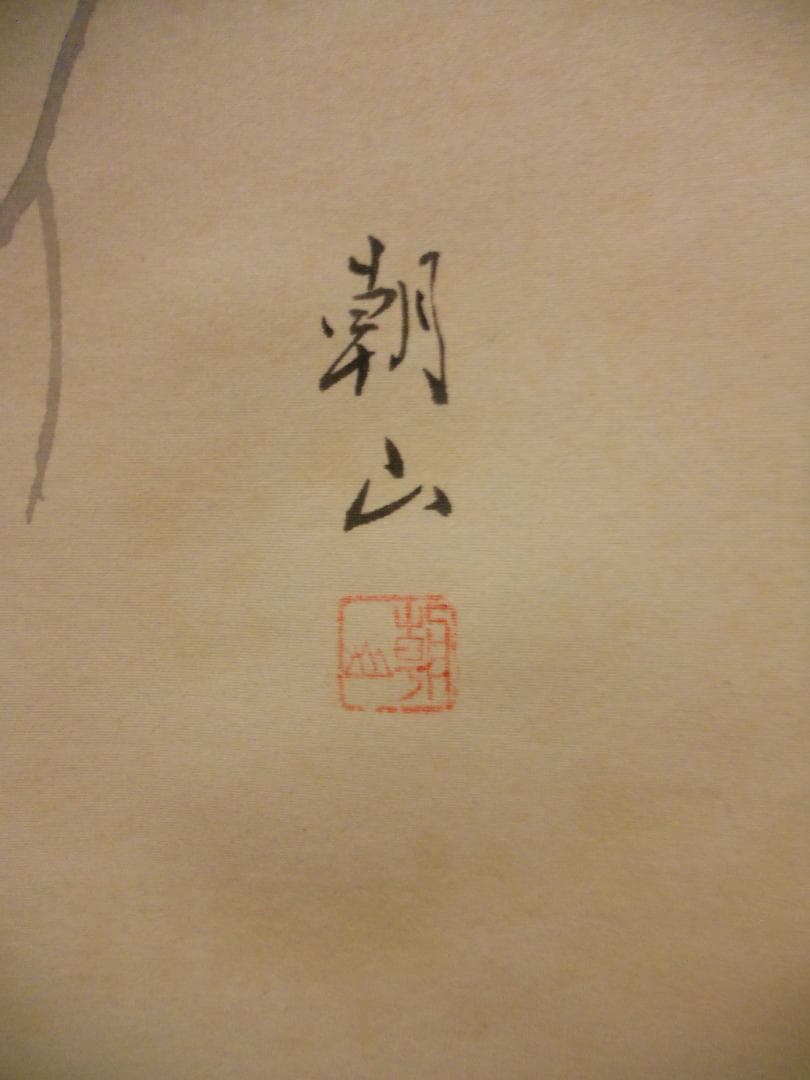 朝山
朝山